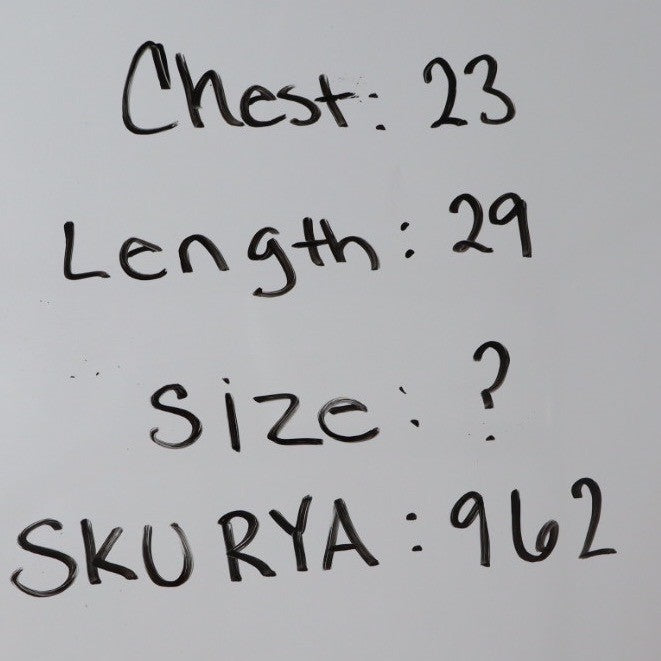 Chest: 23
Length: 29
Size: ?
SKU RYA: 962